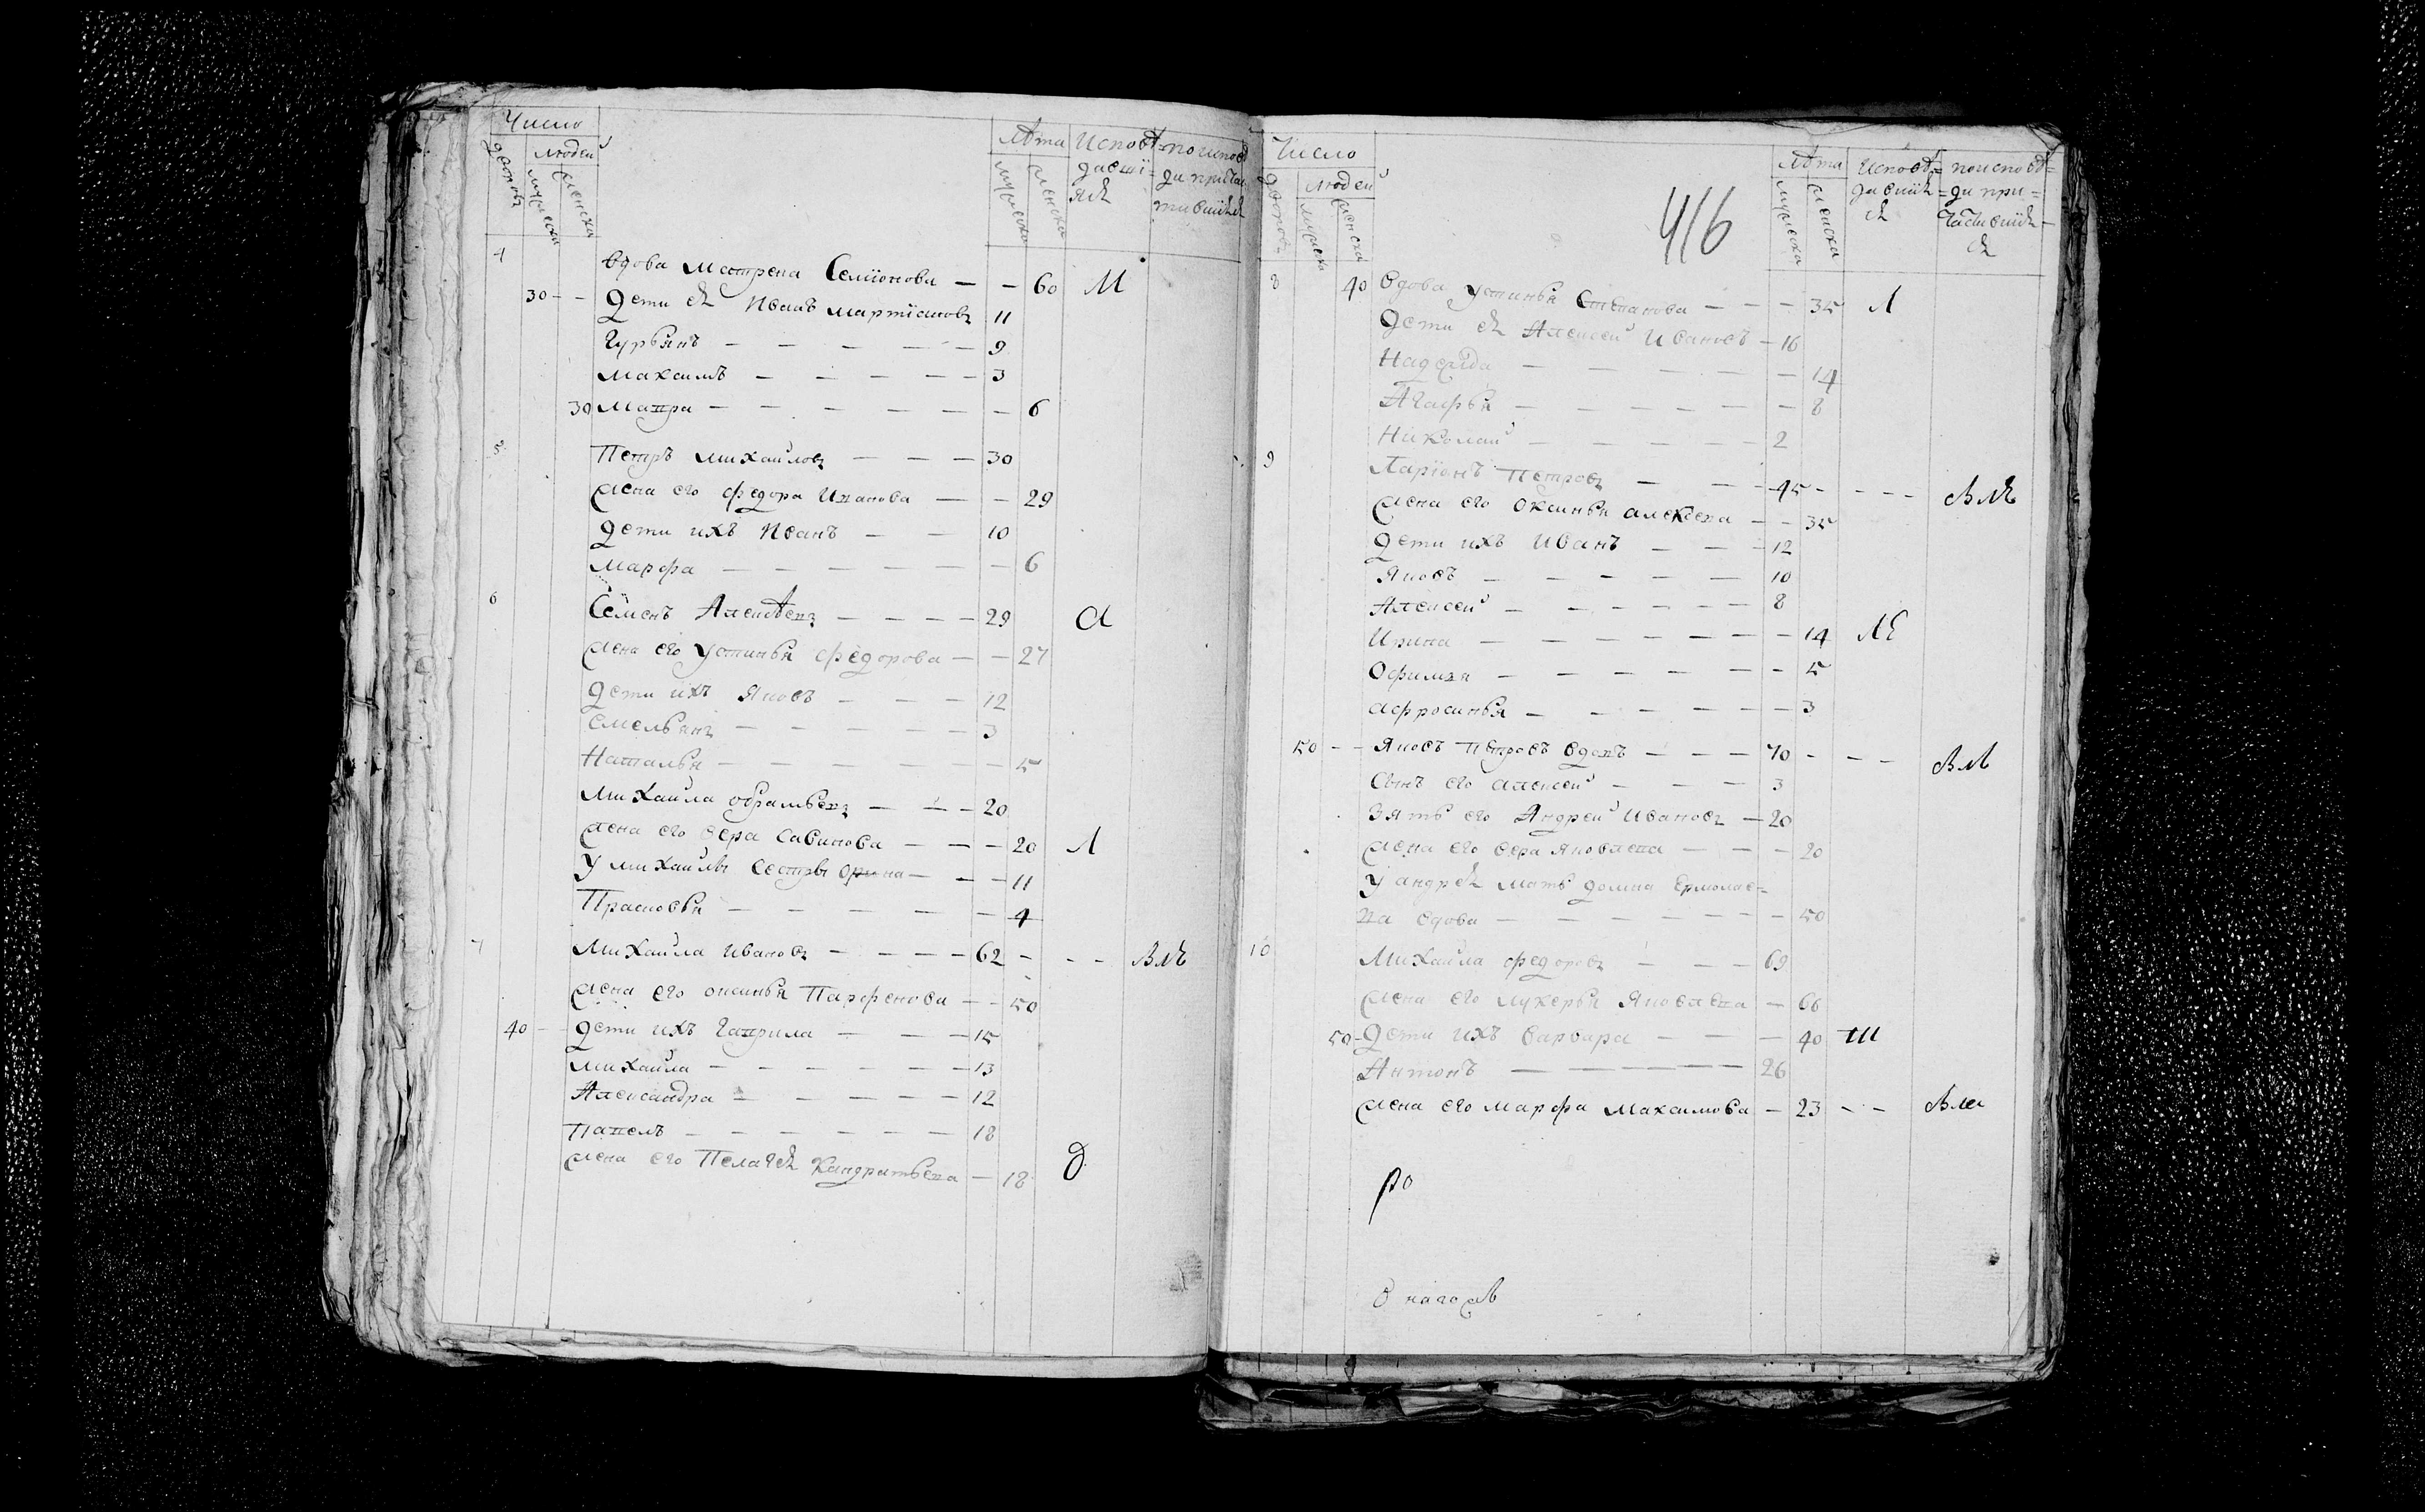 Число
дворовъ
людей
мужеска
женска
Лѣта
мужеска
женска
Исповѣ=
давшї=
яся
по испов
ди прича
тившїяся
4
вдова матрена Семїонова — — 60 М
30 - - дети ея Иванъ мартїановъ 11
Гурьянъ — — — — — 9
максимъ — — — — — 3
30 мавра — — — — — — 6
5
Петръ михайловъ — — — 30
жена его федора Иванова — — 29
дети ихъ Иванъ — — 10
марфа — — — — — — 6
6
Семенъ Алексѣевъ — — — — 29
жена его устинья федорова — — 27
дети ихъ Яковъ — — — 12
емельянъ — — — — — 3
Наталья — — — — — — 5
михайла обрамьевъ — — — 20
жена его вера савинова — — — 20 Л
у михайлы сестры орина — — — 11
Прасковья — — — — — — 4
7
михайла ивановъ — — — — 62 - - -
жена его оксинья Парфенова — — 50
40 - - дети ихъ гаврила — — — 15
михайла — — — — — — 13
Александра — — — — — 12
Павелъ — — — — — — 18
жена его Пелагея Кандратьева — 18
Число
дворовъ
людей
мужеска
женска
416
Лѣта
мужеска
женска
Исповѣ=
давшїя=
ся
по исповѣ=
ди при=
частившїя=
ся
8 40 вдова устинья Степанова — — — 35 Л
дети ея Алексей Ивановъ — 16
Надежда — — — — — — 14
Агафья — — — — — — 8
Николай — — — — — 2
9
Ларїонъ Петровъ — — — 45 - - - -
жена его оксинья алексева — — 35
дети ихъ Иванъ — — — 12
Яковъ — — — — — 10
Алексей — — — — — 8
Ирина — — — — — — — 14
Офимья — — — — — — 5
афросинья — — — — — — 3
50 - - Яковъ петровъ вдовъ — — — 70 - - -
сынъ его алексей — — — 3
зять его Андрей Ивановъ — 20
жена его вера яковлева — — — 20
у андрея мать домна Ермолае=
ва вдова — — — — — — 50
10
Михайла федоровъ — — — 69
жена его лукерья Яковлева — 66
50 - дети ихъ варвара — — — 40
Антонъ — — — — — 26
жена его марфа максимова — 23 - -
ро